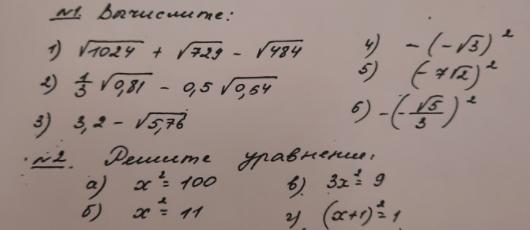 №1. Вычислите:
1) √1024 + √729 − √484
2) 1/3 √0,81 − 0,5 √0,64
3) 3,2 − √5,76
4) −(−√3)²
5) (−7√2)²
6) −(−√5/3)²
№2. Решите уравнение:
а) x² = 100
б) x² = 11
в) 3x² = 9
г) (x+1)² = 1